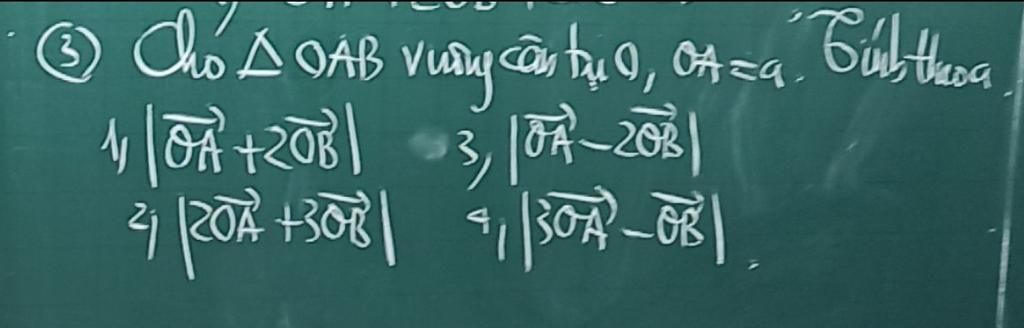 ③ Cho △ OAB vuông cân tại O, OA = a. Tính theo a
1, |\overrightarrow{OA} + 2\overrightarrow{OB}| 3, |\overrightarrow{OA} - 2\overrightarrow{OB}|
2, |2\overrightarrow{OA} + 3\overrightarrow{OB}| 4, |3\overrightarrow{OA} - \overrightarrow{OB}|.